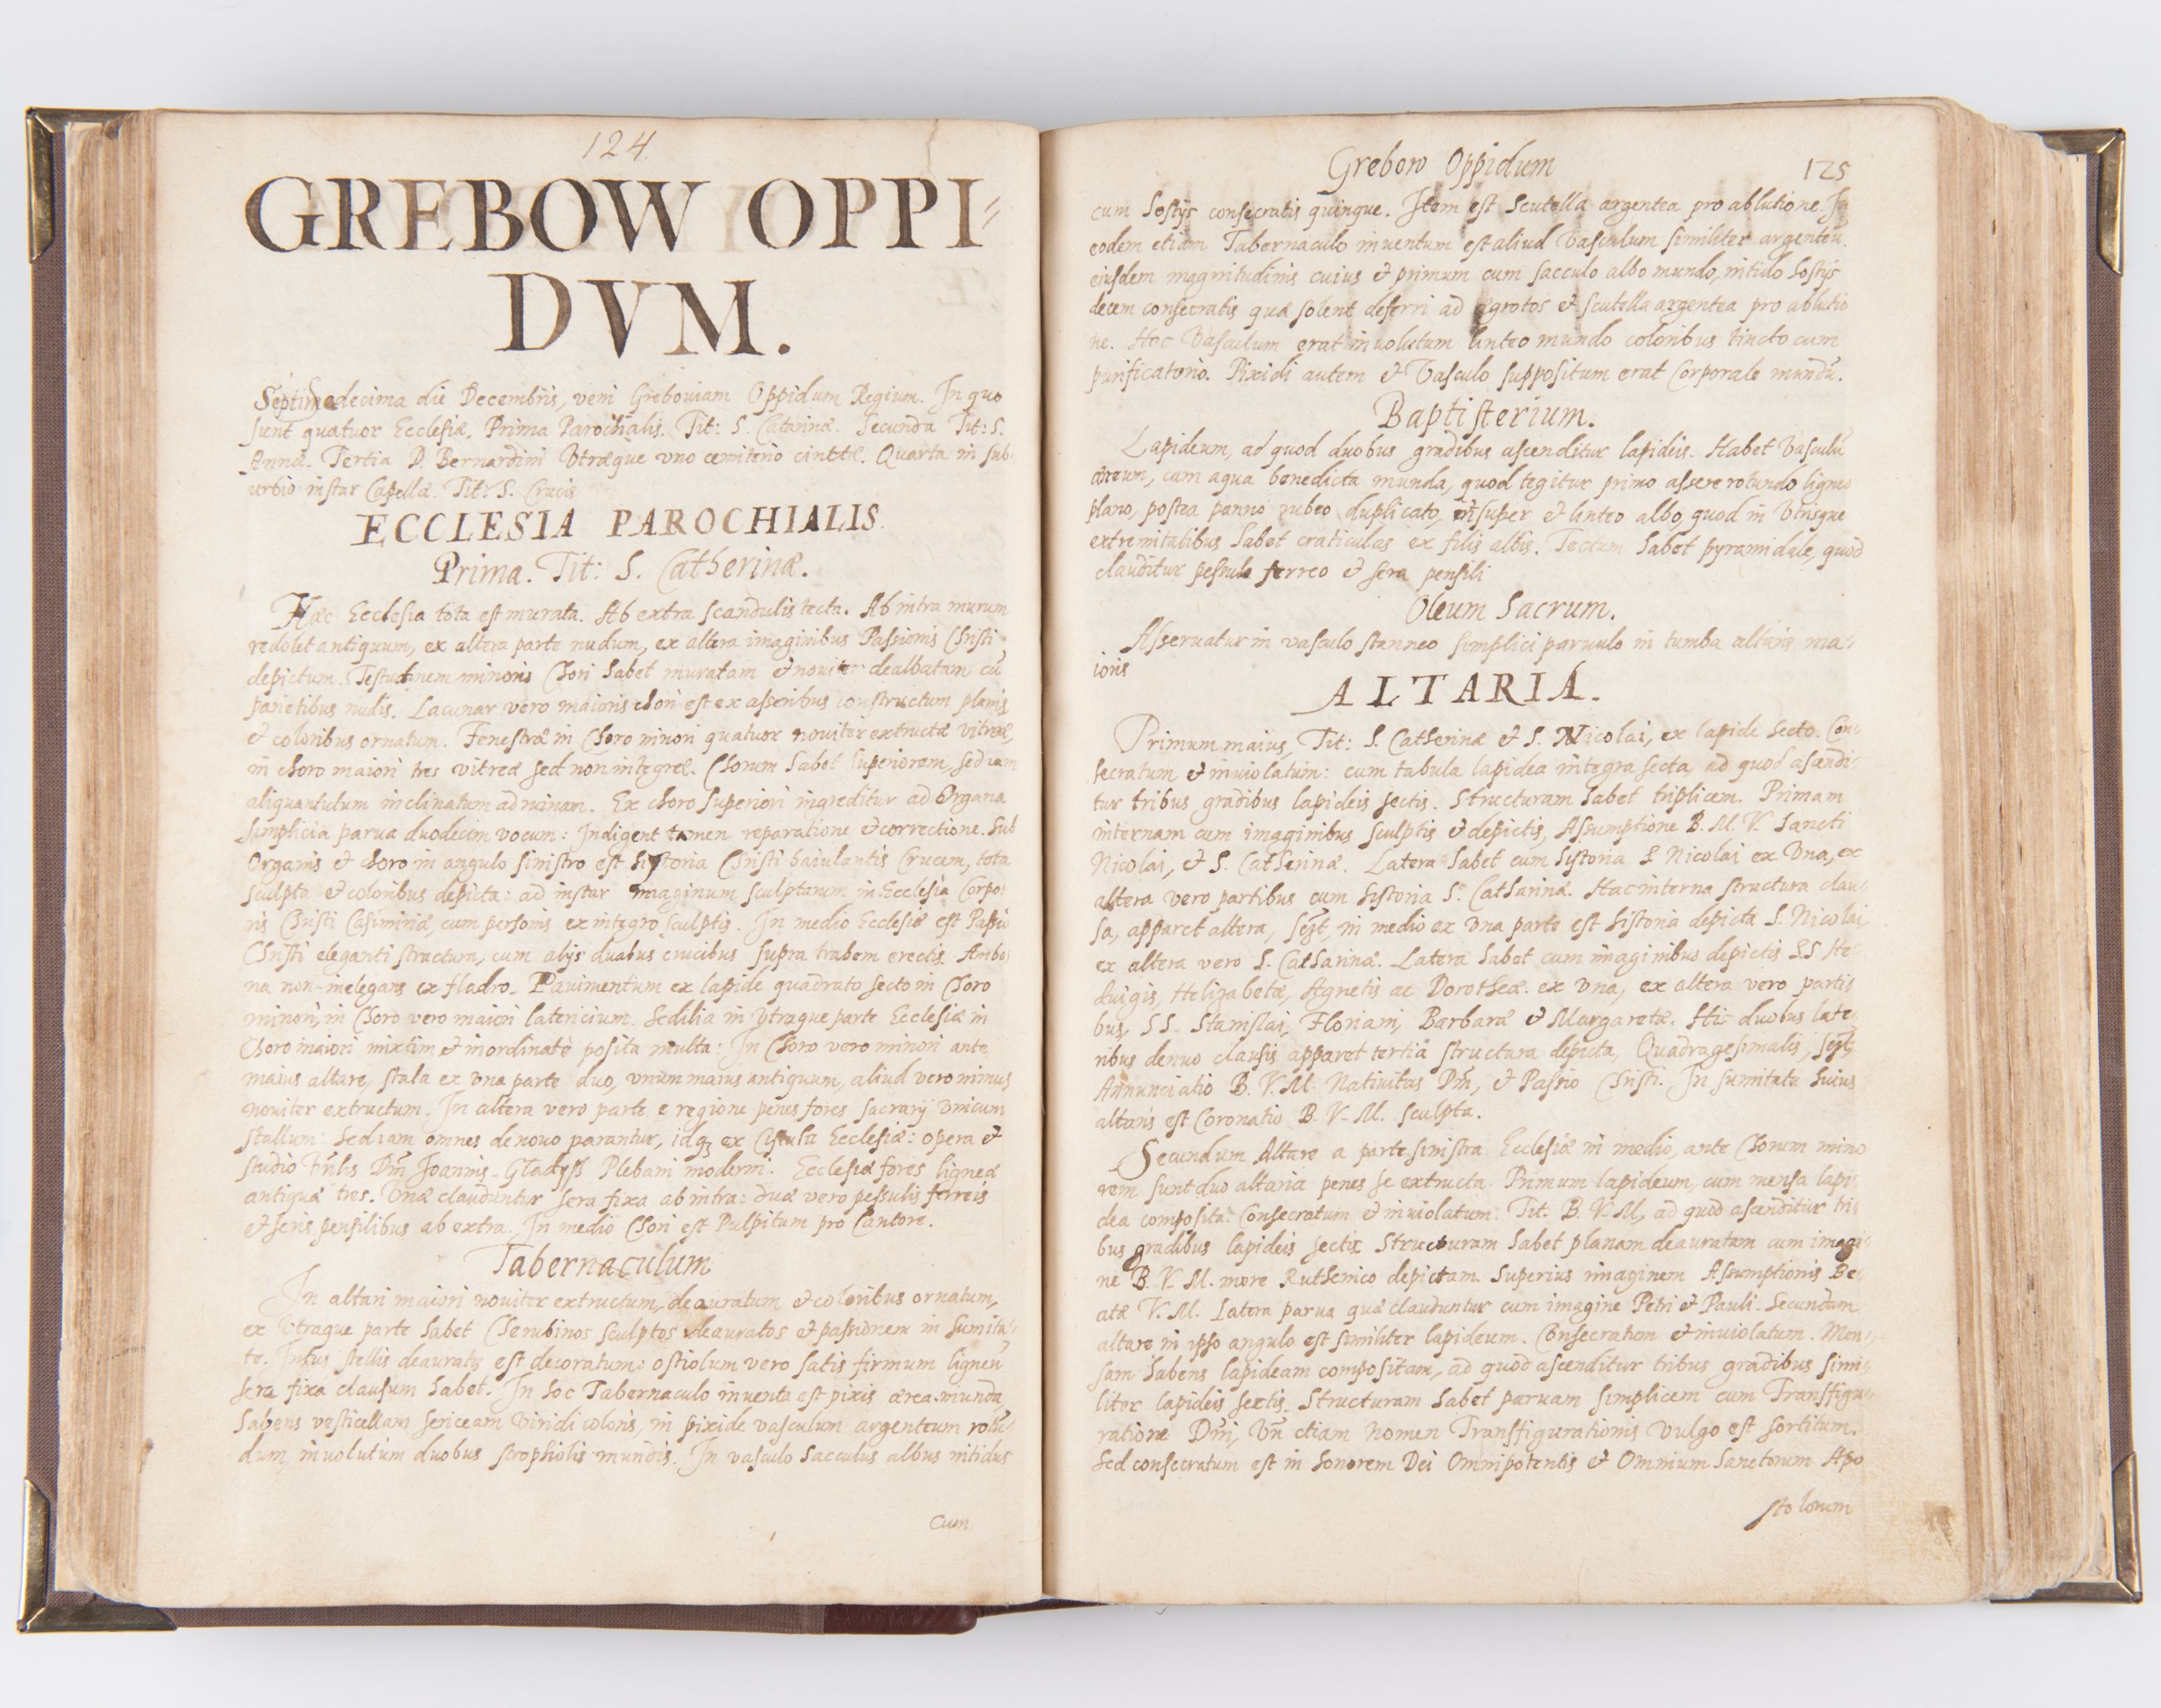 124.
GREBOW OPPI=
DVM.
Septimadecima die Decembris, veni Greboviam Oppidum Regium. In quo
sunt quatuor Ecclesiæ, Prima Parochialis. Tit: S. Catarinæ. Secunda Tit: S.
Annæ. Tertia D. Bernardini Utræque uno cemiterio cinctæ. Quarta in sub-
urbio instar Capellæ. Tit: S. Crucis
ECCLESIA PAROCHIALIS
Prima. Tit: S. Catherinæ.
Hæc Ecclesia tota est murata. Ab extra scandulis tecta. Ab intra murum
redolet antiquum, ex altera parte nudum, ex altera imaginibus Passionis Christi
depictum. Testudinem minoris Chori habet muratam et noviter dealbatam cū
parietibus nudis. Lacunar vero maioris chori est ex asseribus constructum planis
et coloribus ornatum. Fenestræ in Choro minori quatuor noviter extructæ vitreæ,
in choro maiori tres vitreæ sed non integræ. Chorum habet superiorem, sed iam
aliquantulum inclinatum ad ruinam. Ex choro superiori ingreditur ad Organa
simplicia parva duodecim vocum: Indigent tamen reparatione et correctione. Sub
Organis et choro in angulo sinistro est historia Christi baiulantis Crucem, tota
sculpta et coloribus depicta: ad instar imaginum sculptarum in Ecclesia Corpo-
ris Christi Casimiriæ, cum personis ex integro sculptis. In medio Ecclesiæ est Passio
Christi eleganti structura, cum alijs duabus crucibus supra trabem erectis. Ambo-
na non inelegans ex fladro. Pavimentum ex lapide quadrato secto in Choro
minori, in Choro vero maiori latericium. Sedilia in utraque parte Ecclesiæ in
Choro maiori mixtim et inordinatè posita multa: In Choro vero minori ante
maius altare, stala ex una parte duo, unum maius antiquum, aliud vero minus
noviter extructum. In altera vero parte e regione penes fores sacrarij unicum
stallum: Sed iam omnes de novo parantur, idq; ex Cistula Ecclesiæ: opera et
studio Dñi Joannis Plebani moderni. Ecclesiæ fores ligneæ
antiquæ tres. Unæ clauduntur sera fixa ab intra: duæ vero pessulis ferreis
et seris pensilibus ab extra. In medio Chori est Pulpitum pro Cantore.
Tabernaculum
In altari maiori noviter extructum, deauratum et coloribus ornatum,
ex utraque parte habet Cherubinos sculptos deauratos et passionem in sumita-
te. Intus stellis deauratis est decoratum: ostiolum vero satis firmum ligneū
sera fixa clausum habet. In hoc Tabernaculo inventa est pixis ærea munda,
habens vesticellam sericeam viridi coloris, in pixide vasculum argenteum rotū-
dum, involutum duobus strophiolis mundis. In vasculo sacculus albus nitidus
cum
Grebow Oppidum 125
cum hostijs consecratis quinque. Item est Scutella argentea pro ablutione. In
eodem etiam Tabernaculo inventum est aliud vasculum similiter argenteū
eiusdem magnitudinis cuius et primum cum sacculo albo mundo, nitido hostijs
decem consecratis quæ solent deferri ad ægrotos et scutella argentea pro ablutio
ne. Hoc Vasculum erat involutum linteo mundo coloribus tincto cum
purificatorio. Pixidi autem et Vasculo suppositum erat Corporale mundū.
Baptisterium.
Lapideum, ad quod duobus gradibus ascenditur lapideis. Habet Vasculū
æreum, cum aqua benedicta munda, quod tegitur primo assere rotundo ligneo
plano, postea panno rubeo duplicato, insuper et linteo albo, quod in utrisque
extremitatibus habet craticulas ex filis albis. Tectum habet pyramidale, quod
clauditur pessulo ferreo et sera pensili
Oleum Sacrum.
Asservatur in vasculo stanneo simplici parvulo in tumba altaris ma-
ioris
ALTARIA.
Primum maius, Tit: S. Catherinæ et S. Nicolai, ex lapide secto. Con-
secratum et inviolatum: cum tabula lapidea integra secta, ad quod ascendi-
tur tribus gradibus lapideis sectis. Structuram habet triplicem. Primam
internam cum imaginibus sculptis et depictis, Assumptione B. M. V. Sancti
Nicolai, et S. Catherinæ. Latera habet cum historia S. Nicolai ex una, ex
altera vero partibus cum historia S. Catharinæ. Hac interna structura clau-
sa, apparet altera, in medio ex una parte est historia depicta S. Nicolai,
ex altera vero S. Catharinæ. Latera habet cum imaginibus depictis SS. He-
duigis, Helizabetæ, Agnetis ac Dorotheæ. ex una, ex altera vero parti-
bus, SS. Stanislai, Floriani, Barbaræ et Margaretæ. His duobus late-
ribus denuo clausis apparet tertia structura depicta, Quadragesimalis,
Annunciatio B. V. M. Nativitas Dñi, et Passio Christi. In sumitate huius
altaris est Coronatio B. V. M. sculpta.
Secundum Altare a parte sinistra Ecclesiæ in medio, ante Chorum mino
rem sunt duo altaria penes se extructa. Primum lapideum, cum mensa lapi-
dea composita. Consecratum et inviolatum. Tit. B. V. M, ad quod ascenditur tri-
bus gradibus lapideis sectis. Structuram habet planam deauratam cum imagi-
ne B. V. M. more Ruthenico depictam. Superius imaginem Assumptionis Be-
atæ V. M. Latera parva quæ clauduntur cum imagine Petri et Pauli. Secundum
altare in ipso angulo est similiter lapideum. Consecratum et inviolatum. Men-
sam habens lapideam compositam, ad quod ascenditur tribus gradibus simi-
liter lapideis sectis. Structuram habet parvam simplicem cum Transfigu-
ratione Dñi, Vñ etiam nomen Transfigurationis vulgo est sortitum.
Sed consecratum est in honorem Dei Omnipotentis et Omnium Sanctorum Apo
stolorum